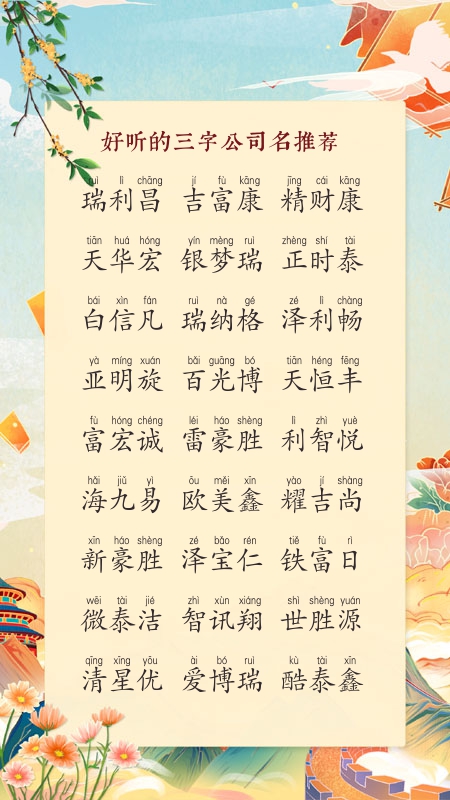 好听的三字公司名推荐
ruì lì chāng jí fù kāng jīng cái kāng
瑞利昌 吉富康 精财康
tiān huá hóng yín mèng ruì zhèng shí tài
天华宏 银梦瑞 正时泰
bái xìn fán ruì nà gé zé lì chàng
白信凡 瑞纳格 泽利畅
yà míng xuán bǎi guāng bó tiān héng fēng
亚明旋 百光博 天恒丰
fù hóng chéng léi háo shèng lì zhì yuè
富宏诚 雷豪胜 利智悦
hǎi jiǔ yì ōu měi xīn yào jí shàng
海九易 欧美鑫 耀吉尚
xīn háo shèng zé bǎo rén tiě fù rì
新豪胜 泽宝仁 铁富日
wēi tài jié zhì xùn xiáng shì shèng yuán
微泰洁 智讯翔 世胜源
qīng xīng yōu ài bó ruì kù tài xīn
清星优 爱博瑞 酷泰鑫